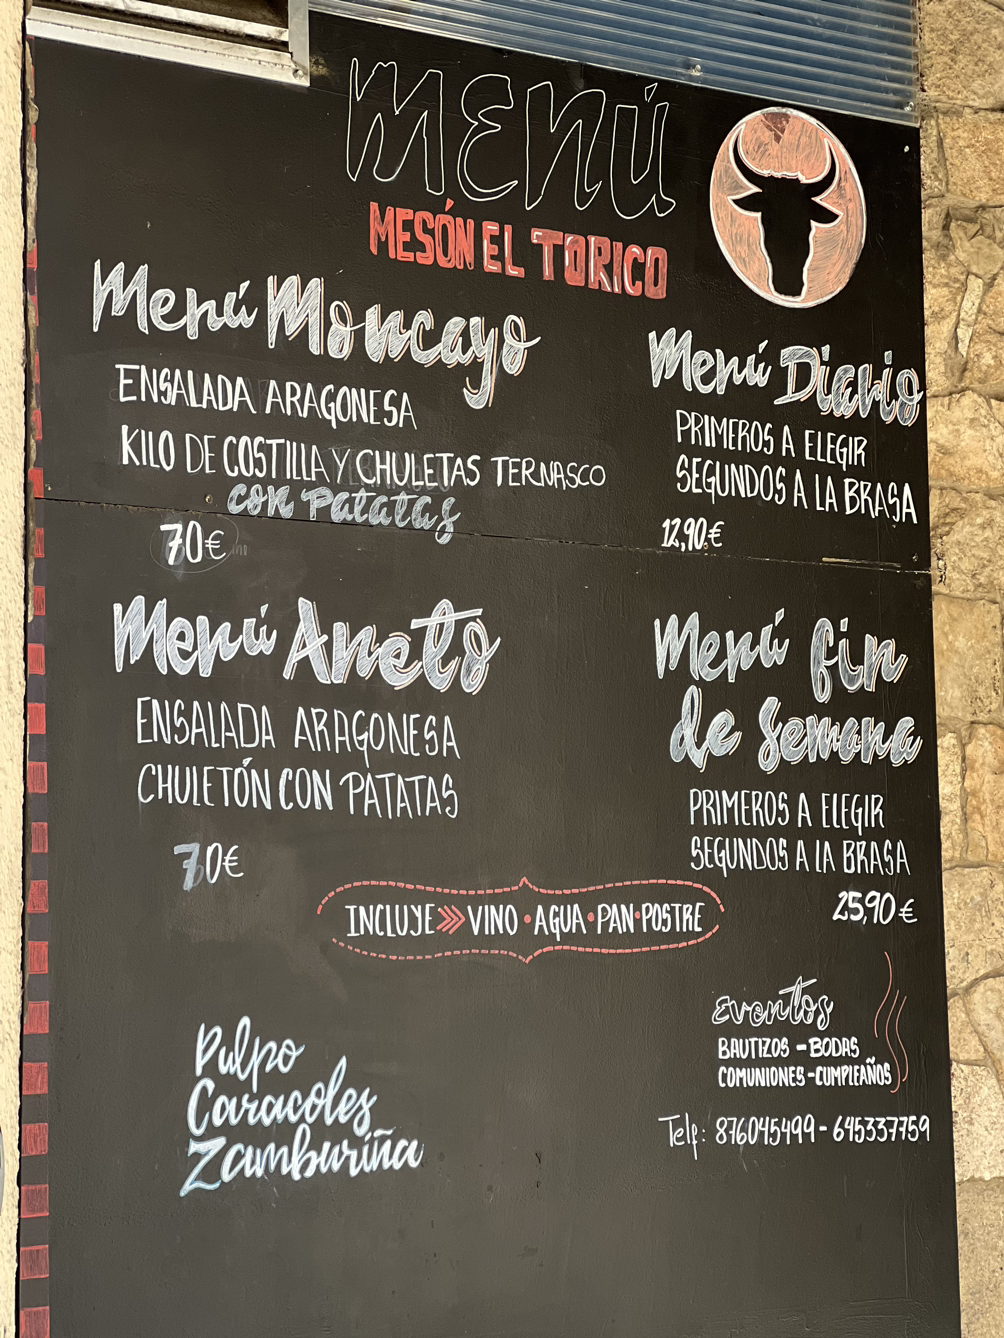 MENÚ
MESÓN EL TORICO
Menú Moncayo
ENSALADA ARAGONESA
KILO DE COSTILLA Y CHULETAS TERNASCO
con patatas
70€
Menú Diario
PRIMEROS A ELEGIR
SEGUNDOS A LA BRASA
12,90€
Menú Aneto
ENSALADA ARAGONESA
CHULETÓN CON PATATAS
70€
Menú fin
de semana
PRIMEROS A ELEGIR
SEGUNDOS A LA BRASA
25,90€
INCLUYE » VINO • AGUA • PAN • POSTRE
Pulpo
Caracoles
Zamburiña
Eventos
BAUTIZOS - BODAS
COMUNIONES - CUMPLEAÑOS
Telf: 876045499 - 645337759